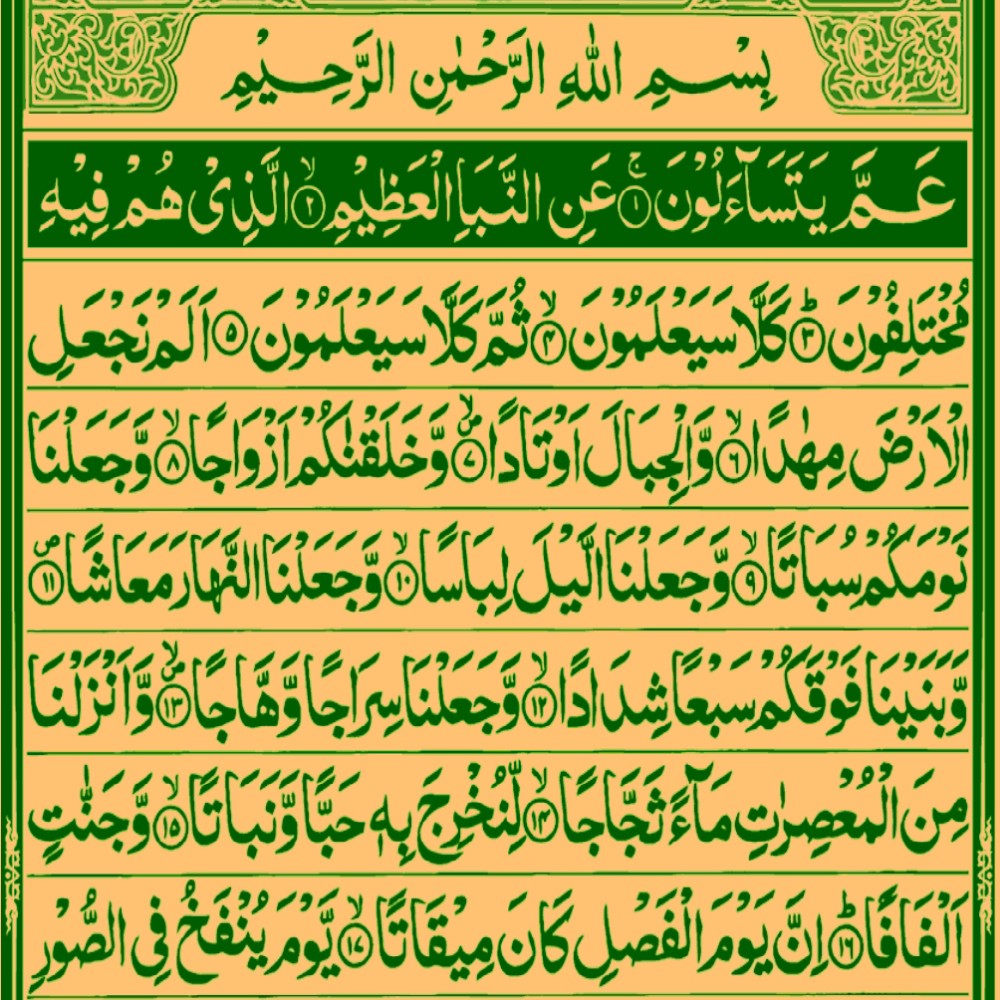 بِسْمِ اللّٰهِ الرَّحْمٰنِ الرَّحِيْمِ
عَمَّ يَتَسَآءَلُوْنَ ۚ﴿۱﴾ عَنِ النَّبَاِ الْعَظِيْمِ ۙ﴿۲﴾ الَّذِىْ هُمْ فِيْهِ
مُخْتَلِفُوْنَ ؕ﴿۳﴾ كَلَّا سَيَعْلَمُوْنَ ۙ﴿۴﴾ ثُمَّ كَلَّا سَيَعْلَمُوْنَ ﴿۵﴾ اَلَمْ نَجْعَلِ
الْاَرْضَ مِهٰدًا ۙ﴿۶﴾ وَّالْجِبَالَ اَوْتَادًا ۪ۙ﴿۷﴾ وَّخَلَقْنٰكُمْ اَزْوَاجًا ۙ﴿۸﴾ وَّجَعَلْنَا
نَوْمَكُمْ سُبَاتًا ۙ﴿۹﴾ وَّجَعَلْنَا الَّيْلَ لِبَاسًا ۙ﴿۱۰﴾ وَّجَعَلْنَا النَّهَارَ مَعَاشًا ۪﴿۱۱﴾
وَّبَنَيْنَا فَوْقَكُمْ سَبْعًا شِدَادًا ۙ﴿۱۲﴾ وَّجَعَلْنَا سِرَاجًا وَّهَّاجًا ۪ۙ﴿۱۳﴾ وَّاَنْزَلْنَا
مِنَ الْمُعْصِرٰتِ مَآءً ثَجَّاجًا ۙ﴿۱۴﴾ لِّنُخْرِجَ بِهٖ حَبًّا وَّنَبَاتًا ۙ﴿۱۵﴾ وَّجَنّٰتٍ
اَلْفَافًا ؕ﴿۱۶﴾ اِنَّ يَوْمَ الْفَصْلِ كَانَ مِيْقَاتًا ۙ﴿۱۷﴾ يَّوْمَ يُنْفَخُ فِى الصُّوْرِ